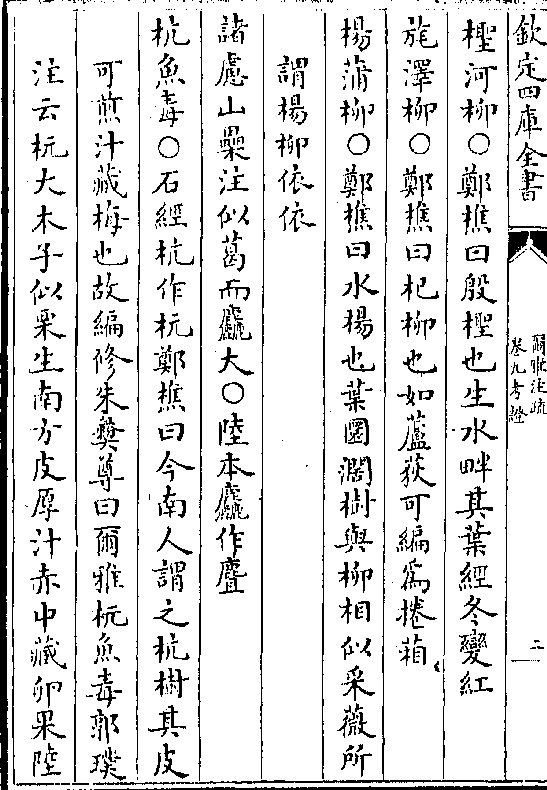 欽定四庫全書
爾雅注疏
卷九考證
二
檉河柳○鄭樵曰殷檉也生水畔其葉經冬變紅
旄澤柳○鄭樵曰杞柳也如蘆荻可編為捲箱
楊蒲柳○鄭樵曰水楊也葉圓濶樹與柳相似采薇所
謂楊柳依依
諸慮山櫐注似葛而麤大○陸本麤作麆
杬魚毒○石經杬作杬鄭樵曰今南人謂之杬樹其皮
可煎汁藏梅也故編修朱彞尊曰爾雅杬魚毒郭璞
注云杬大木子似栗生南方皮厚汁赤中藏卵果陸